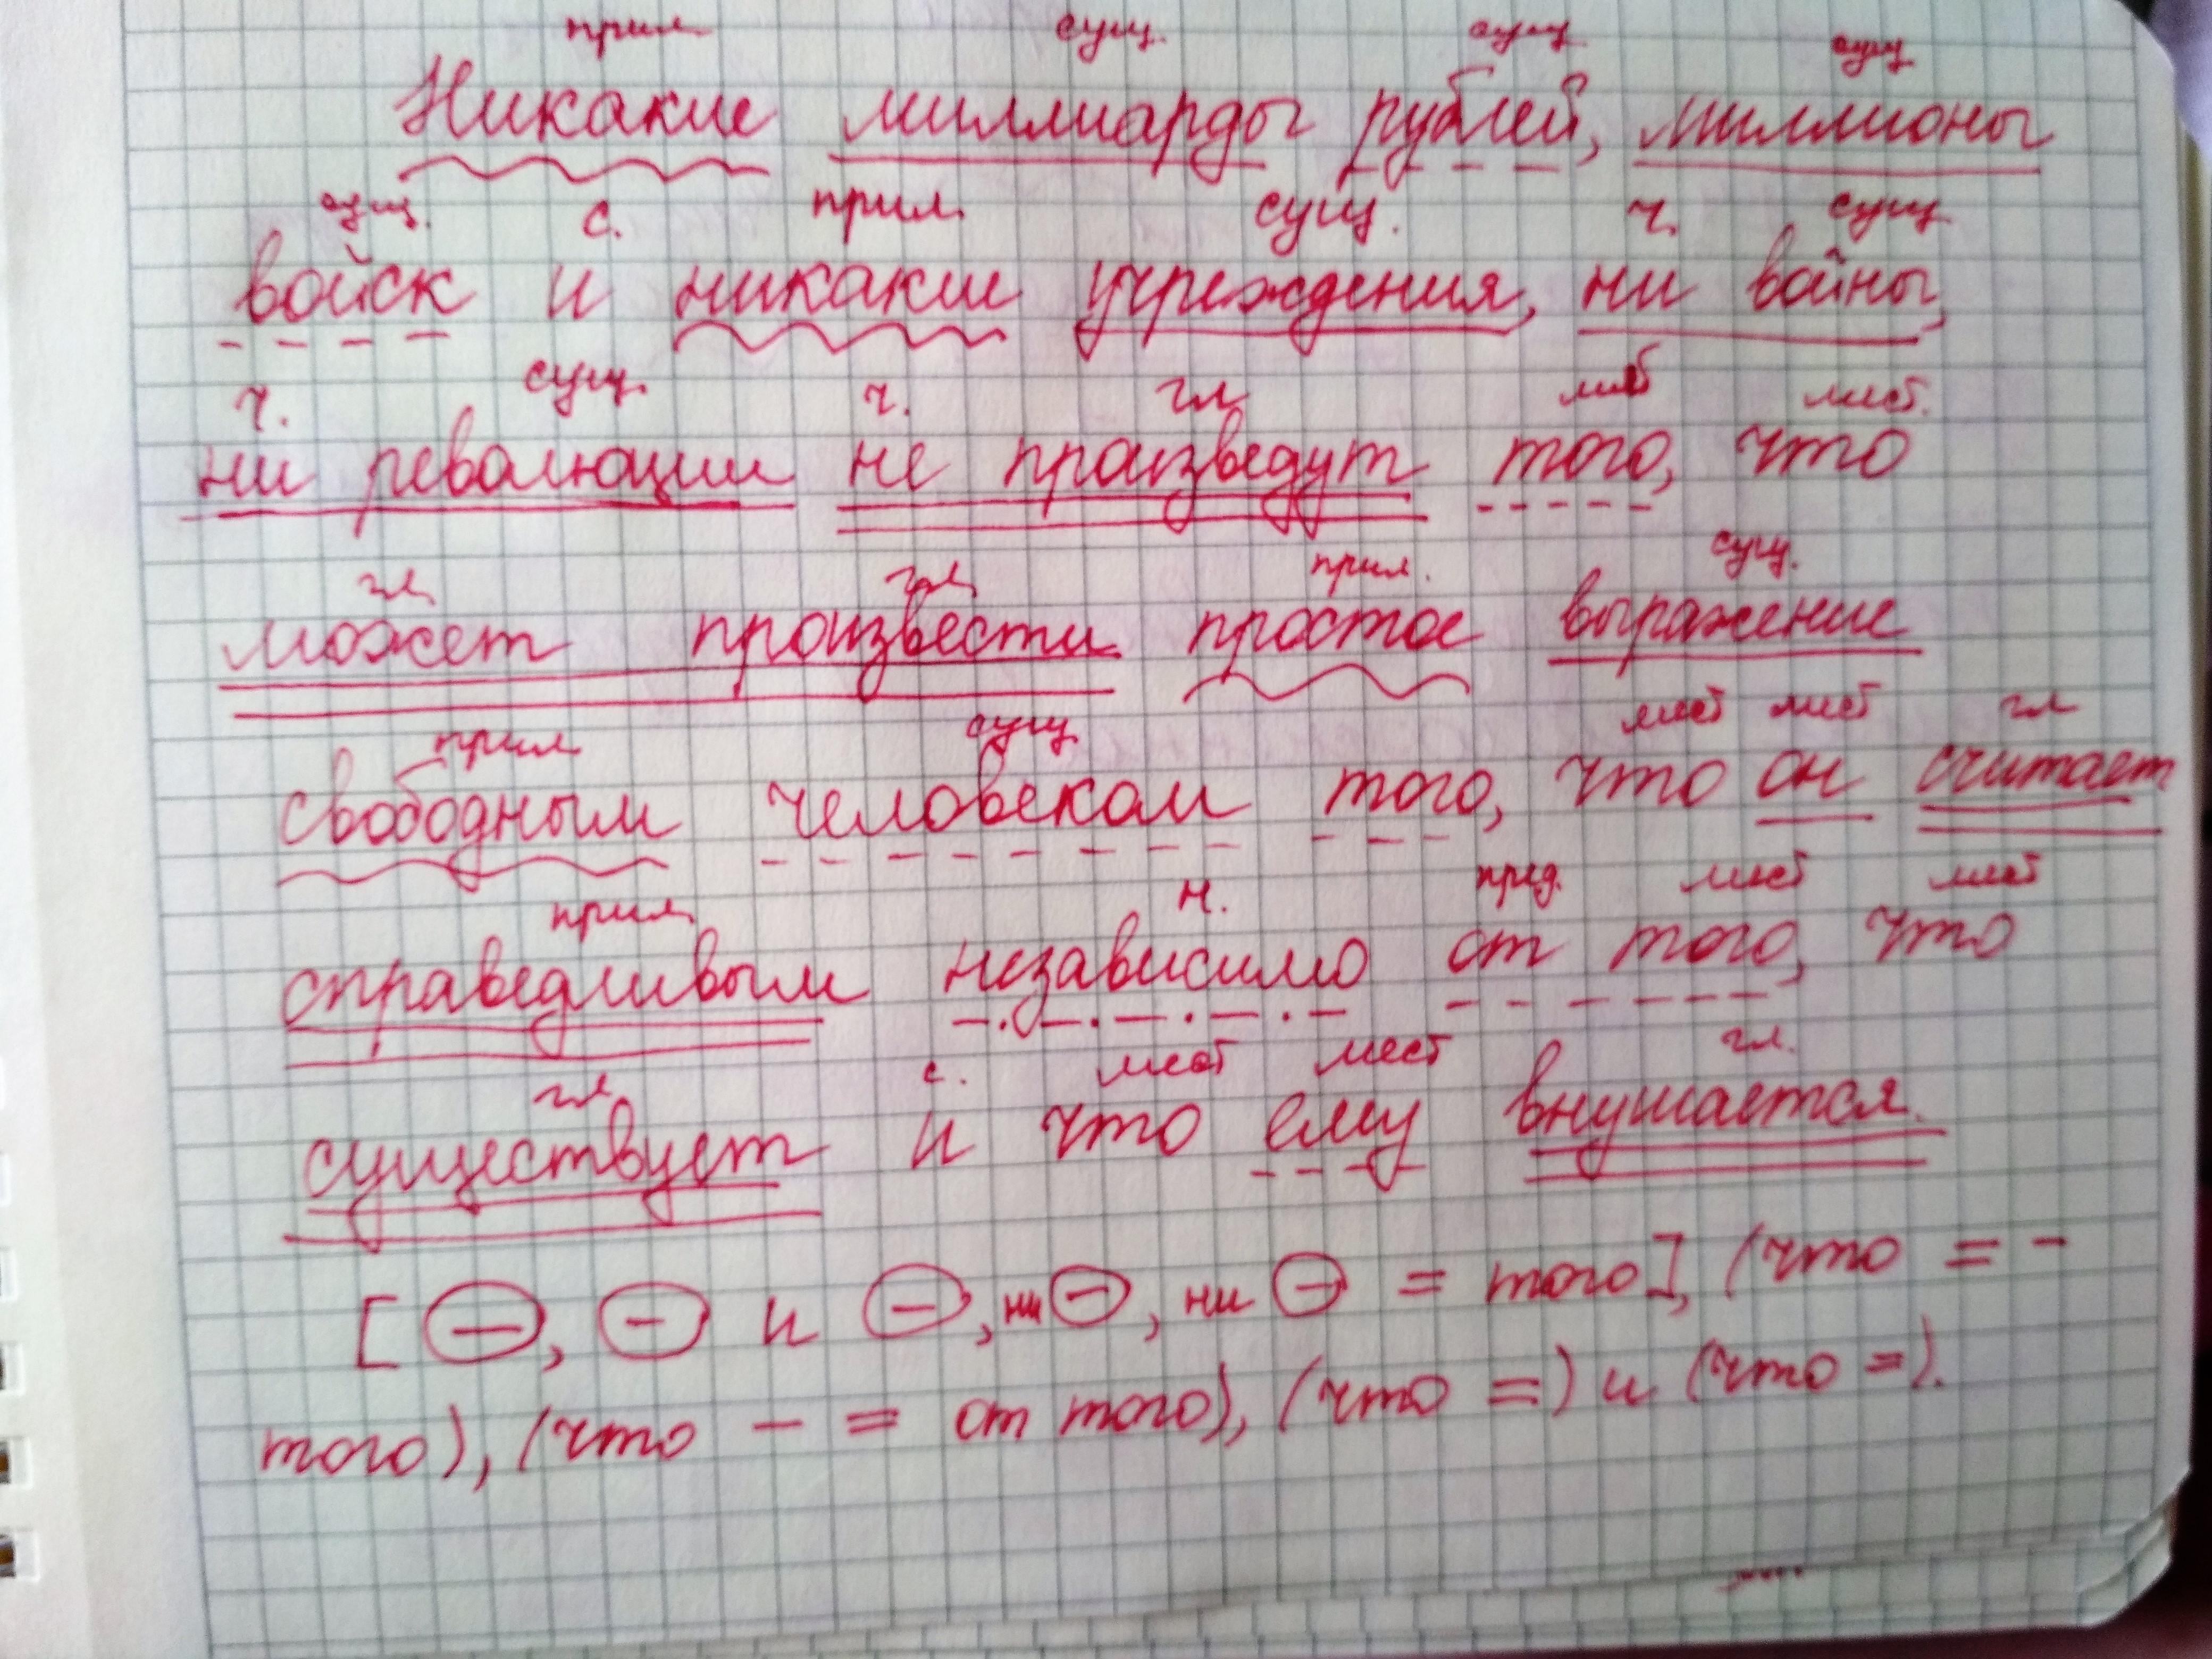 прил. сущ. сущ. сущ
Никакие миллиарды рублей, миллионы
сущ. с. прил. сущ. ч. сущ.
войск и никакие учреждения, ни войны,
ч. сущ. ч. гл мест мест.
ни революции не произведут того, что
гл гл прил. сущ.
может произвести простое выражение
прил сущ мест мест гл
свободным человеком того, что он считает
прил. н. пред. мест мест
справедливым независимо от того, что
гл с. мест мест гл.
существует и что ему внушается.
[⊖, ⊖ и ⊖, ни ⊖, ни ⊖ = того], (что = -
того), (что - = от того), (что =) и (что =).